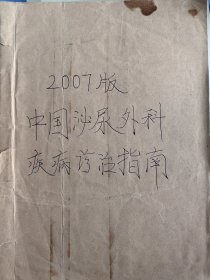 2007版
中国泌尿外科
疾病诊治指南